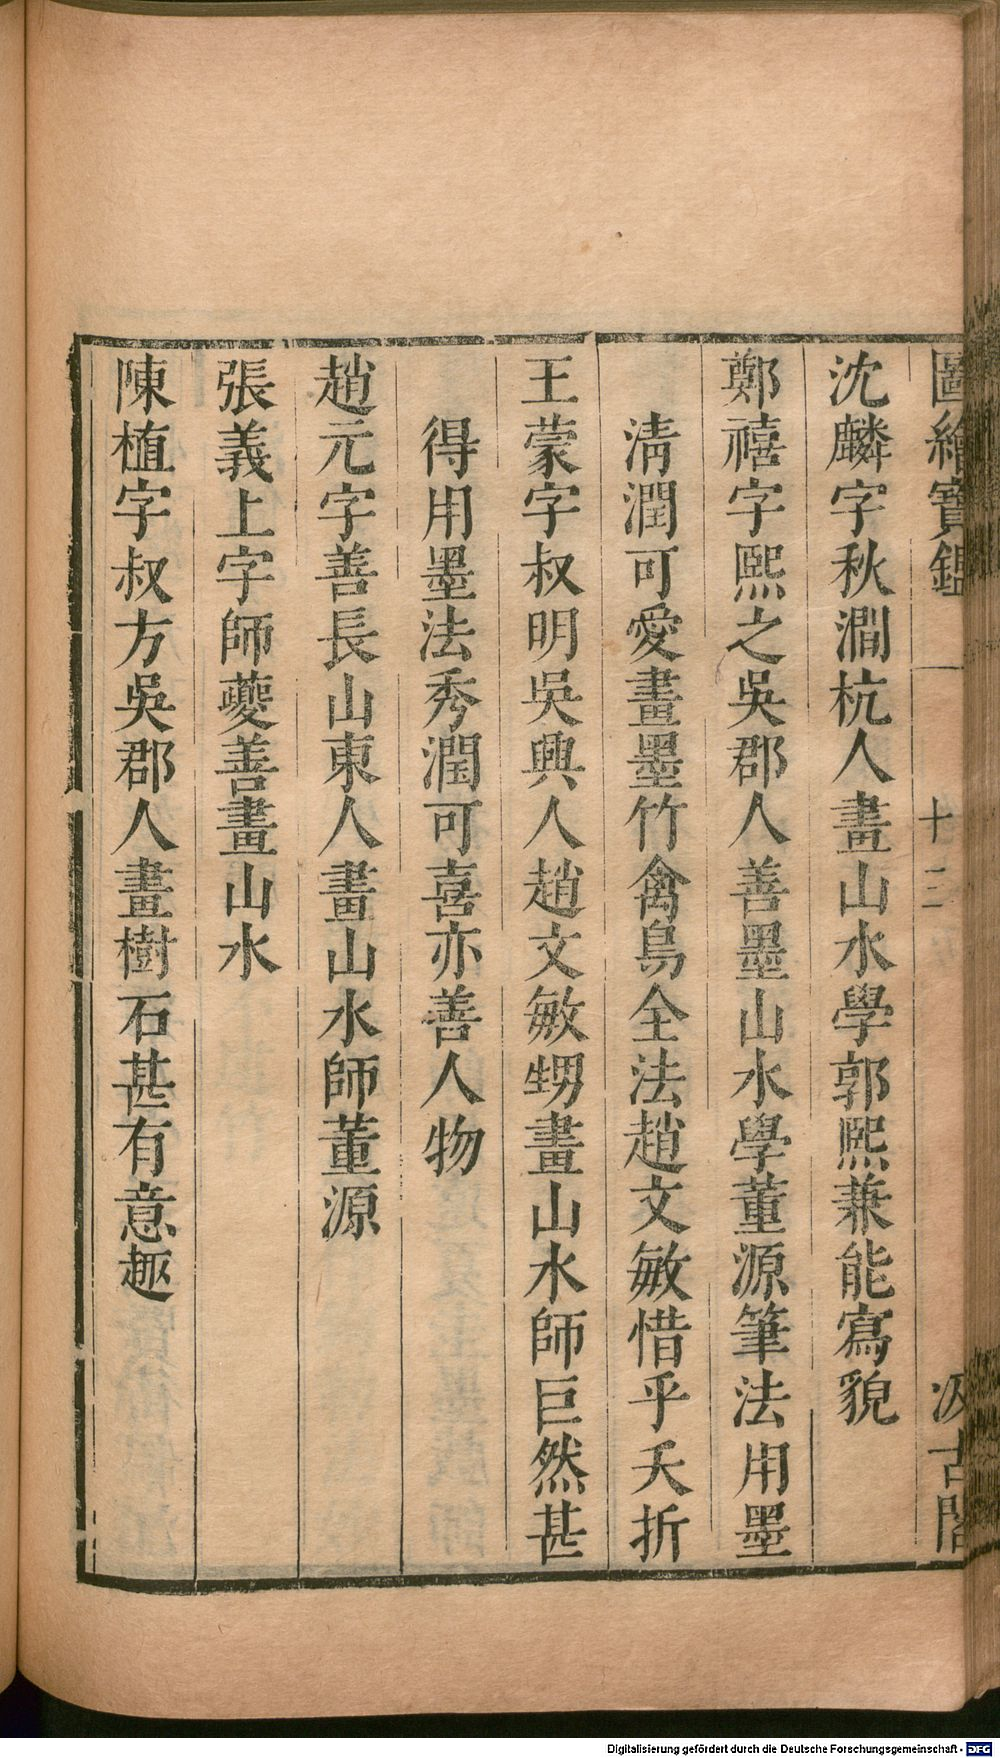 圖繪寳鑑 十三 汲古閣
沈麟字秋澗杭人畫山水學郭熙兼能寫貌
鄭禧字熙之吳郡人善墨山水學董源筆法用墨
淸潤可愛畫墨竹禽鳥全法趙文敏惜乎夭折
王蒙字叔明吳興人趙文敏甥畫山水師巨然甚
得用墨法秀潤可喜亦善人物
趙元字善長山東人畫山水師董源
張義上字師夔善畫山水
陳植字叔方吳郡人畫樹石甚有意趣
Digitalisierung gefördert durch die Deutsche Forschungsgemeinschaft - DFG